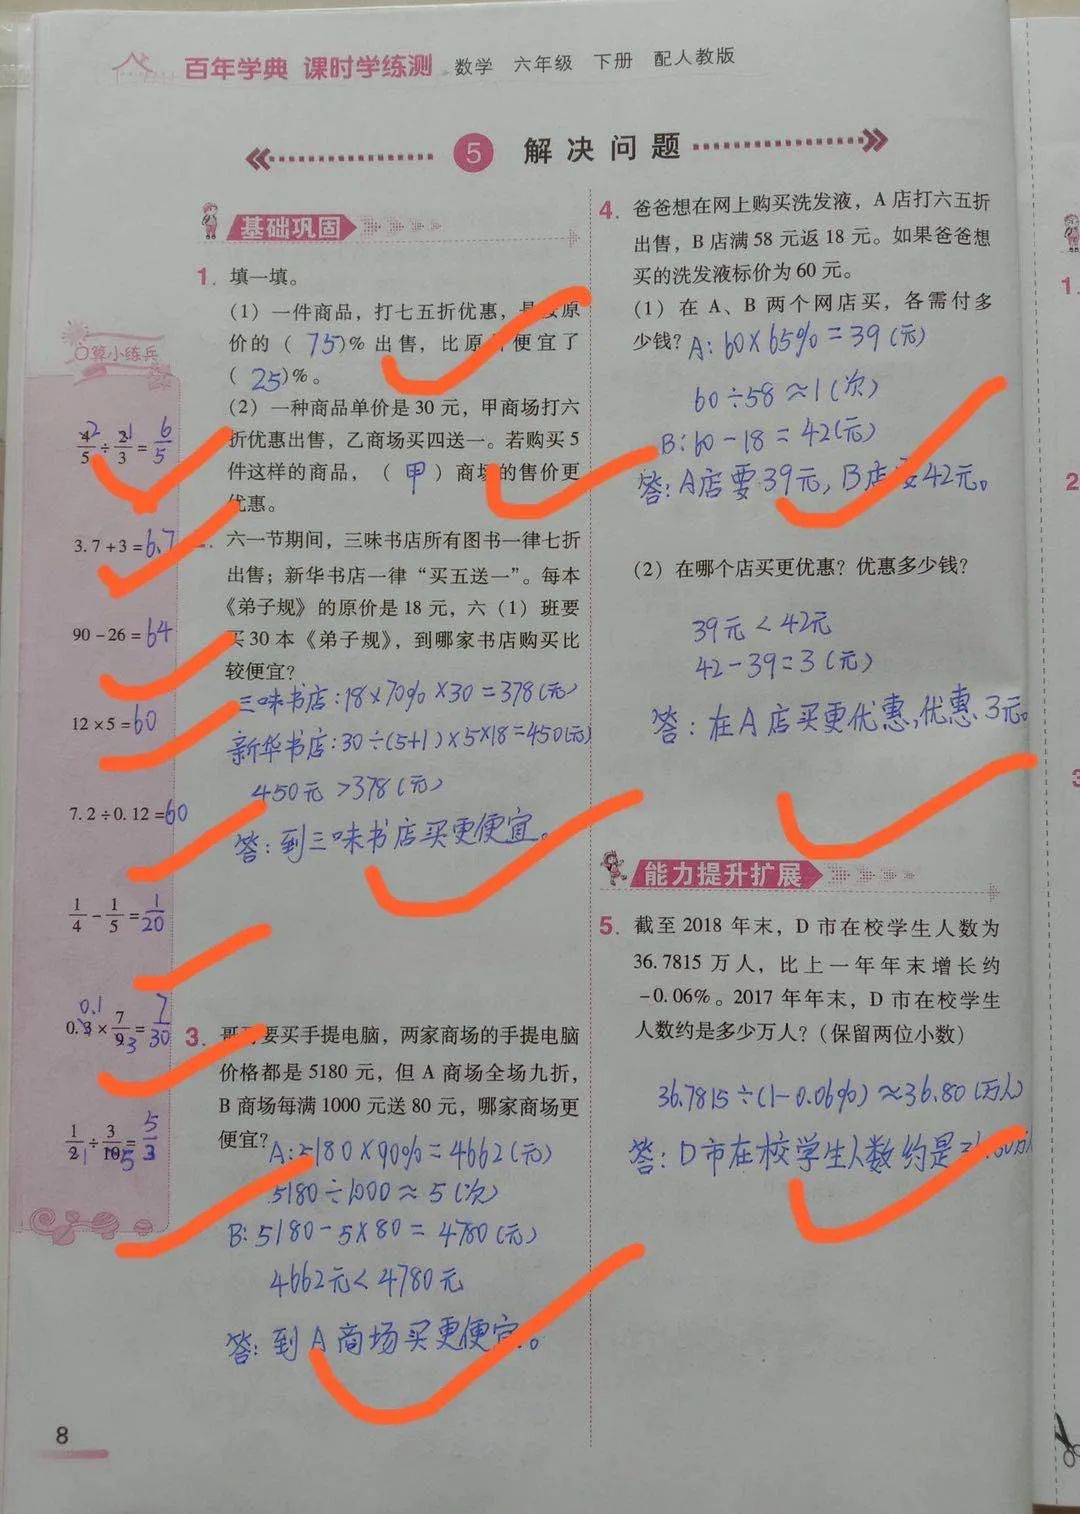 百年学典 课时学练测 数学 六年级 下册 配人教版
5 解决问题
口算小练兵
4/5 ÷ 2/3 = 6/5
3.7+3=6.7
90-26=64
12×5=60
7.2÷0.12=60
1/4 - 1/5 = 1/20
0.3 × 7/9 = 7/30
1/2 ÷ 3/10 = 5/3
基础巩固
1. 填一填。
(1) 一件商品，打七五折优惠，是按原
价的（ 75 ）% 出售，比原 便宜了
（ 25 ）%。
(2) 一种商品单价是 30 元，甲商场打六
折优惠出售，乙商场买四送一。若购买 5
件这样的商品，（ 甲 ）商场的售价更
优惠。
六一节期间，三味书店所有图书一律七折
出售；新华书店一律“买五送一”。每本
《弟子规》的原价是 18 元，六（1）班要
买 30 本《弟子规》，到哪家书店购买比
较便宜？
三味书店：18×70%×30=378(元)
新华书店：30÷(5+1)×5×18=450(元)
450元>378(元)
答：到三味书店买更便宜。
3. 哥哥要买手提电脑，两家商场的手提电脑
价格都是 5180 元，但 A 商场全场九折，
B 商场每满 1000 元送 80 元，哪家商场更
便宜？
A:5180×90%=4662(元)
5180÷1000≈5(次)
B:5180-5×80=4780(元)
4662元<4780元
答：到A商场买更便宜。
4. 爸爸想在网上购买洗发液，A 店打六五折
出售，B 店满 58 元返 18 元。如果爸爸想
买的洗发液标价为 60 元。
(1) 在 A、B 两个网店买，各需付多
少钱？ A:60×65%=39(元)
60÷58≈1(次)
B:60-18=42(元)
答：A店要39元，B店要42元。
(2) 在哪个店买更优惠？优惠多少钱？
39元<42元
42-39=3(元)
答：在A店买更优惠，优惠3元。
能力提升扩展
5. 截至 2018 年末，D 市在校学生人数为
36.7815 万人，比上一年年末增长约
-0.06%。2017 年年末，D 市在校学生
人数约是多少万人？（保留两位小数）
36.7815÷(1-0.06%)≈36.80(万人)
答：D市在校学生人数约是
8